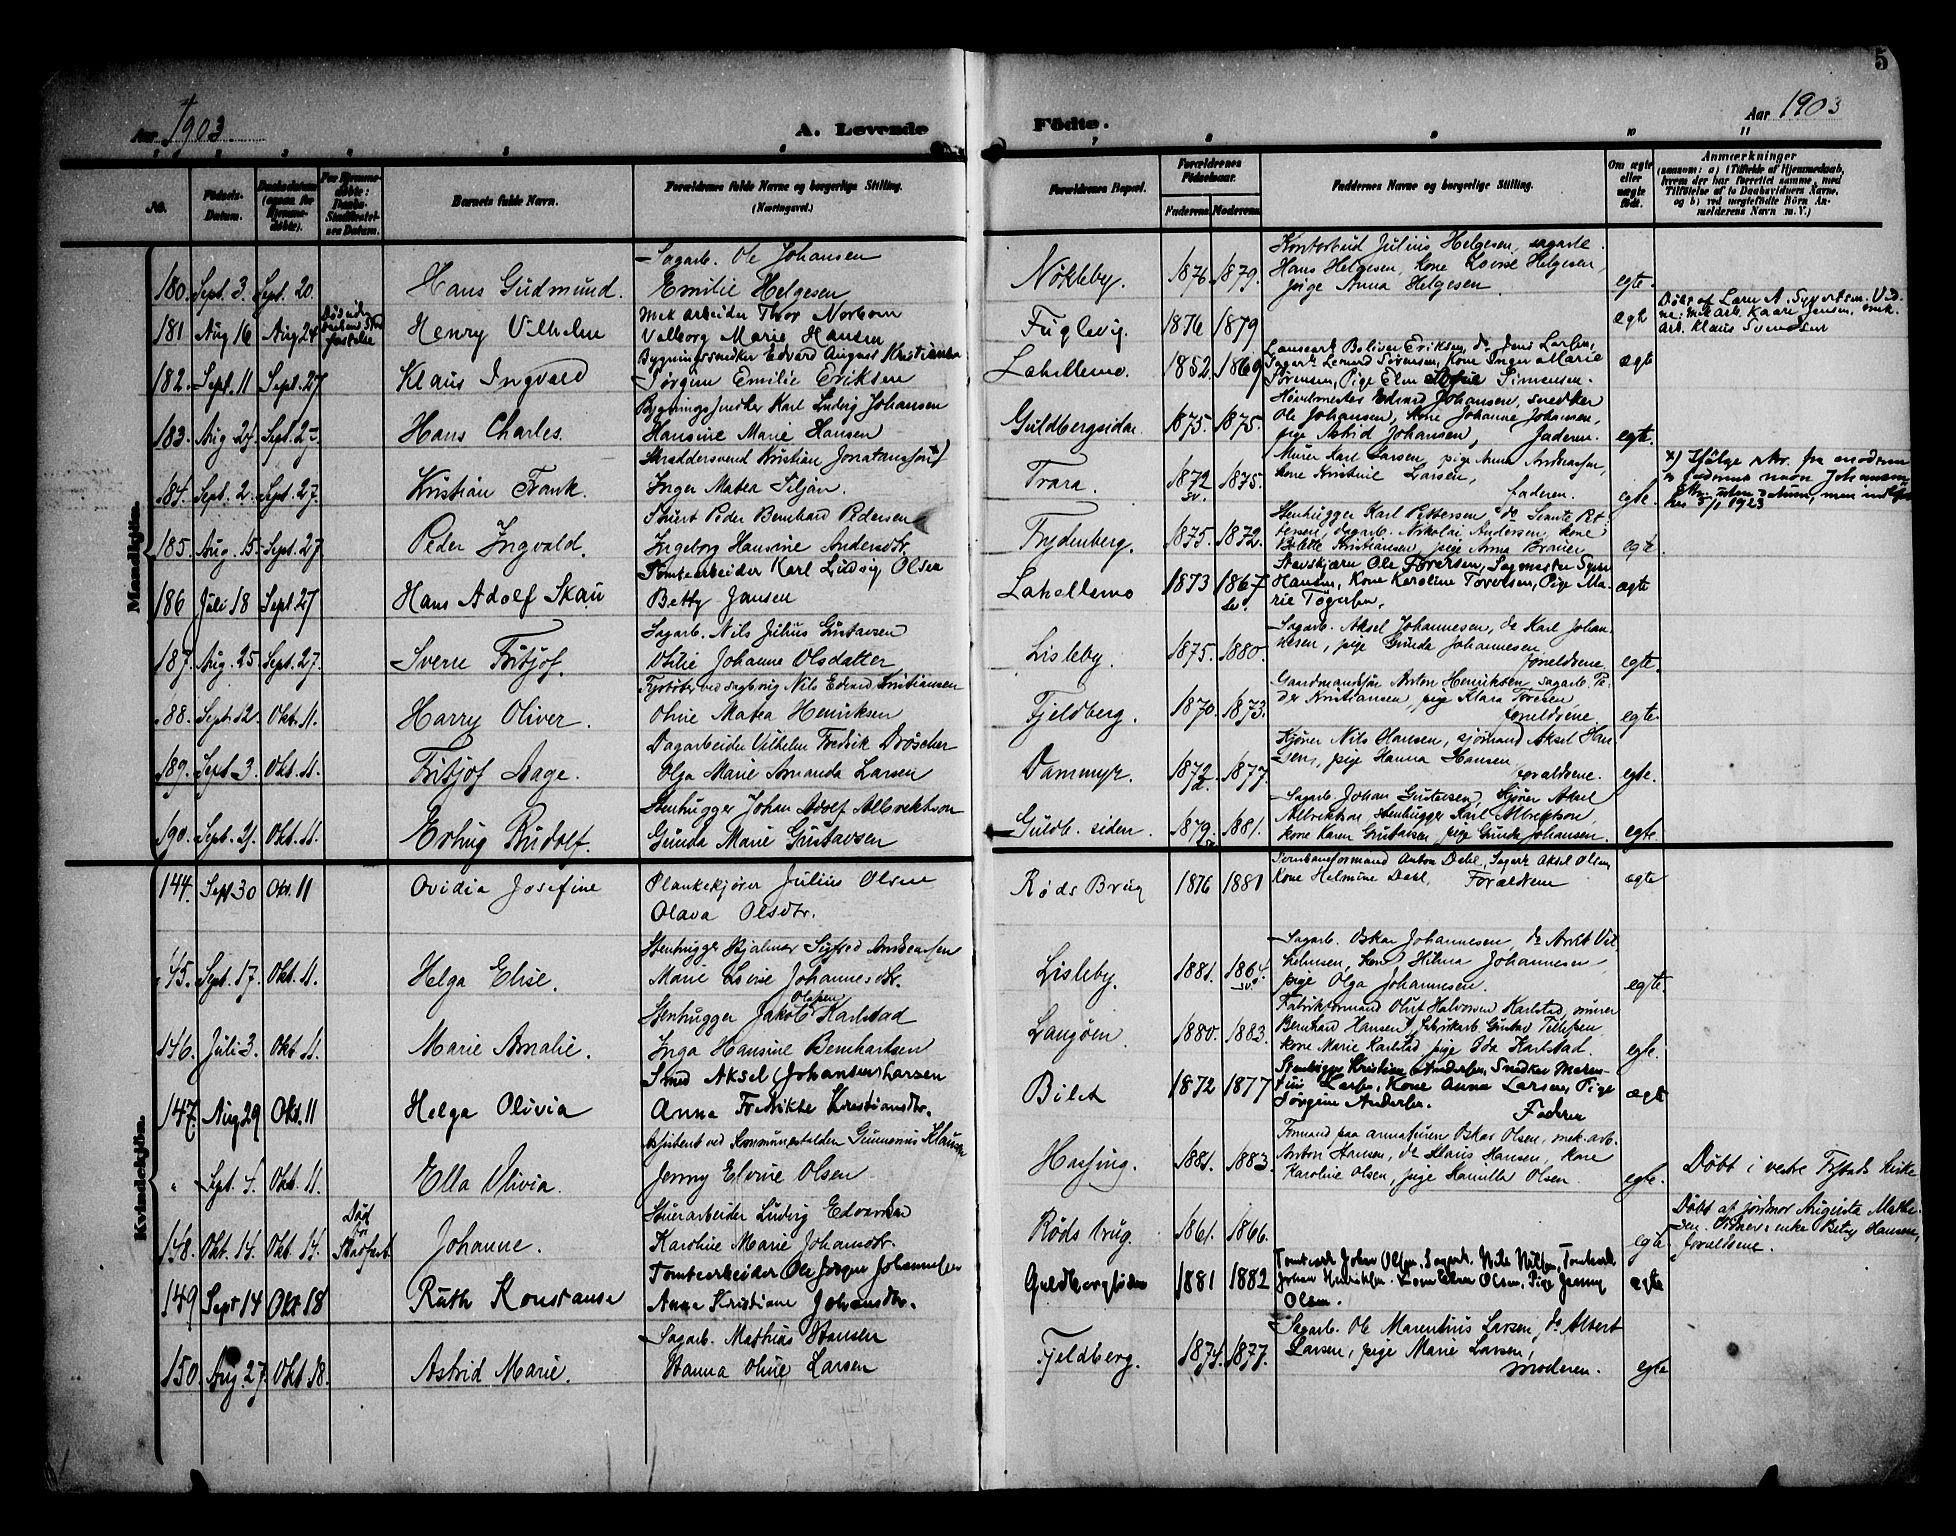 5
Aar 1903.
A. Levende Födte.
Aar 1903
1 2 3 4 5 6 7 8 9 10 11
No.
Fødsels-Datum.
Daabsdatum (ogsaa for Hjemme-døbte).
For Hjemme-døbte: Daabs-Stadfæstel-ses Datum.
Barnets fulde Navn.
Forældrenes fulde Navne og borgerlige Stilling. (Næringsvei.)
Forældrenes Bopæl.
Forældrenes Fødselsaar.
Faderens. Moderens.
Faddernes Navne og borgerlige Stilling.
Om ægte eller uægte født.
Anmærkninger
(saasom: a) i Tilfælde af Hjemmedaab, hvem der har forrettet samme, med Tilføielse af to Daabsvidners Navne, og b) ved uegtefödte Börn An-melderens Navn m. V.)
Mandkjön.
180. Sept. 3. Sept. 20. Hans Gudmund. Sagarb. Ole Johansen
Emilie Helgesen
Nökleby. 1876. 1879. Kontorbud Julius Helgesen, sagarb.
Hans Helgesen, kone Lovise Helgesen,
pige Anna Helgesen egte.
181 Aug 16 Aug 24 Henry Vilhelm Mek arbeider Thor Norbom
Valborg Marie Hansen
Fuglevig. 1876 1879 ægte
Døbt af Lars A. Syvertsen. Vid-
ne: mek arb. Kaare Jensen, mek.
arb. Klaus Svendsen
182. Sept. 11 Sept. 27 Klaus Ingvald Bygningssnedker Edvard August Kristiansen
Jørgine Emilie Eriksen
Lahellemo. 1852. 1869 Eriksen, do Jens Larsen,
Sørensen, Kone Inger Marie
Sørensen, Pige Elen Sofie Simensen. ægte
183. Aug 24. Sept. 27 Hans Charles. Bygningssnedker Karl Ludvig Johansen
Hansine Marie Hansen
Guldbergsiden. 1875. 1875. Høvelmester Edvard Johansen, snedker
Ole Johansen, kone Johanne Johansen,
pige Astrid Johansen, faderen. egte.
184. Sept. 2. Sept. 27. Kristian Frank. Skræddersvend Kristian Jonatansson x)
Inger Matea Siljan.
Trara. 1872 sv. 1875. Murer Karl Larsen, pige Anna Andreassen,
kone Kristine Larsen,
faderen. egte.
x) Ifølge skr. fra moderen
navn Johansen
1923
185. Aug. 15. Sept. 27 Peder Ingvald. Peder Bernhard Pedersen
Ingeborg Hansine Andersdtr.
Frydenberg. 1875. 1872. Stenhugger Karl Pettersen, do Pet-
tersen, dagarb. Nikolai Andersen, kone
Kristiansen, pige Anna egte
186 Juli 18 Sept. 27 Hans Adolf Skau Tomtearbeider Karl Ludvig Olsen
Betty Jansen
Lahellemo 1873 1867 sv. Ole Torersen, Sagmester
Hansen, Kone Karoline Toversen, Pige Ma-
rie ægte
187. Aug. 25. Sept. 27. Sverre Fritjof. Sagarb. Nils Julius Gustavsen
Otilie Johanne Olsdatter
Lisleby. 1875. 1880. Sagarb. Aksel Johannesen, do Karl Johan-
nesen, pige Gunda Johannesen
foreldrene egte.
188. Sept. 12. Okt. 11. Harry Oliver. Fyrbøter ved sagbrug Nils Edvard Kristiansen
Oline Matea Henriksen
Fjeldberg. 1870. 1873. Gaardmandssøn Anton Henriksen, sagarb. Pe-
der Kristiansen, pige Klara Toresen
foreldrene egte.
189. Sept. 3. Okt. 11. Fritjof Aage. Dagarbeider Vilhelm Fredrik Dröscher
Olga Marie Amanda Larsen
Dammyr. 1872 1877. Kjører Nils Hansen, sjømand Aksel Han-
sen, pige Hanna Hansen
foreldrene. egte.
190. Sept. 21. Okt. 11. Erling Rudolf. Stenhugger Johan Adolf Albrektson
Gunda Marie Gustavsen
Guldb. siden. 1879. 1881. Sagarb. Johan Gustavsen, kjører Aksel
Albrektson, stenhugger Karl Albrektson,
kone Karen Gustavsen, pige Gunda Johansen. egte.
Kvindekjön.
144. Sept 30 Okt. 11 Ovidia Josefine Plankekjører Julius Olsen
Olava Olsdtr.
Røds Brug 1876 1881 Jernbaneformand Anton Dahl, Sagarb. Aksel Olsen
Kone Helmine Dahl, Forældrene ægte
145. Sept. 17. Okt. 11. Helga Elise. Stenhugger Hjalmar Sigfred Andreassen
Marie Lovise Johannesdtr.
Lisleby. 1881. 1864. sv. Sagarb. Oskar Johannesen, do Arnt Vil-
helmsen, kone Hilma Johannesen,
pige Olga Johannesen. egte.
146. Juli 3. Okt. 11. Marie Amalie. Stenhugger Jakob Olafsen Karlstad
Inga Hansine Bernhartsen
Langøen. 1880. 1883. Fabrikformand Oluf Halvorsen Karlstad, murer
Bernhard Hansen, fabrikarb. Gustav Tellefsen
kone Marie Karlstad, pige Ida Karlstad. egte.
147. Aug 29 Okt. 11 Helga Olivia Smed Aksel Johansen Larsen
Anna Fredrikke Kristiansdtr.
Bilet 1872 1877 Stenhugger Kristian Andersen, Snedker Maren-
tius Larsen, Kone Anna Larsen, Pige
Jørgine Andersen. Faderen ægte
" Sept. 4. Okt. 11. Ella Olivia. Assistent ved Kommunekassen Gunnerius Klausen
Jenny Elvine Olsen
Hassing. 1881. 1883. Formand paa armaturen Oskar Olsen, mek. arb.
Anton Hansen, do Klaus Hansen, kone
Karoline Olsen, pige Kamilla Olsen egte.
Døbt i vestre Fr.stads kirke
148. Okt. 14. Okt. 14. Død før Stadf. Johanne. Stuerarbeider Ludvig Edvardsen
Karoline Marie Johansdtr.
Røds brug. 1861. 1866. egte
Døbt af jordmor Augusta Mathe-
sen. Vidner: enke Betsy Hansen,
foreldrene.
149 Sept 14 Okt 18 Ruth Konstanse Tomtearbeider Ole Jørgen Johannesen
Anna Kristiane Johansdtr.
Guldbergsiden 1881 1882 Tomtearb. Johan Olsen, Sagarb. Nils Nilsen, Tomtearb.
Johan Henriksen, Kone Elen Olsen, Pige Jenny
Olsen. ægte
150. Aug. 27. Okt. 18. Astrid Marie. Sagarb. Mathias Hansen
Hanna Oline Larsen
Fjeldberg. 1874. 1877. Sagarb. Ole Marentius Larsen, do Albert
Larsen, pige Marie Larsen,
moderen. egte